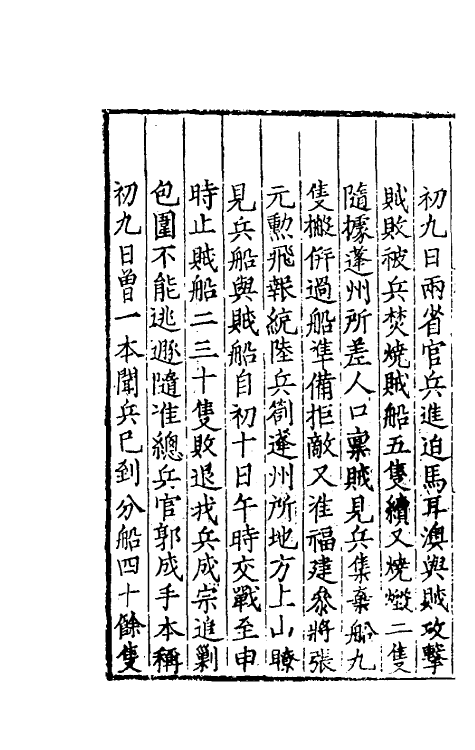 初九日兩省官兵進迫馬耳澳與賊攻擊
賊敗被兵焚燒賊船五隻續又燒燬二隻
隨據蓬州所差人口稟賊見兵集棄船九
隻搬併過船準備拒敵又准福建參將張
元勳飛報統陸兵劄蓬州所地方上山瞭
見兵船與賊船自初十日午時交戰至申
時止賊船二三十隻敗退我兵成宗追剿
包圍不能逃遯隨准總兵官郭成手本稱
初九日曾一本聞兵已到分船四十餘隻